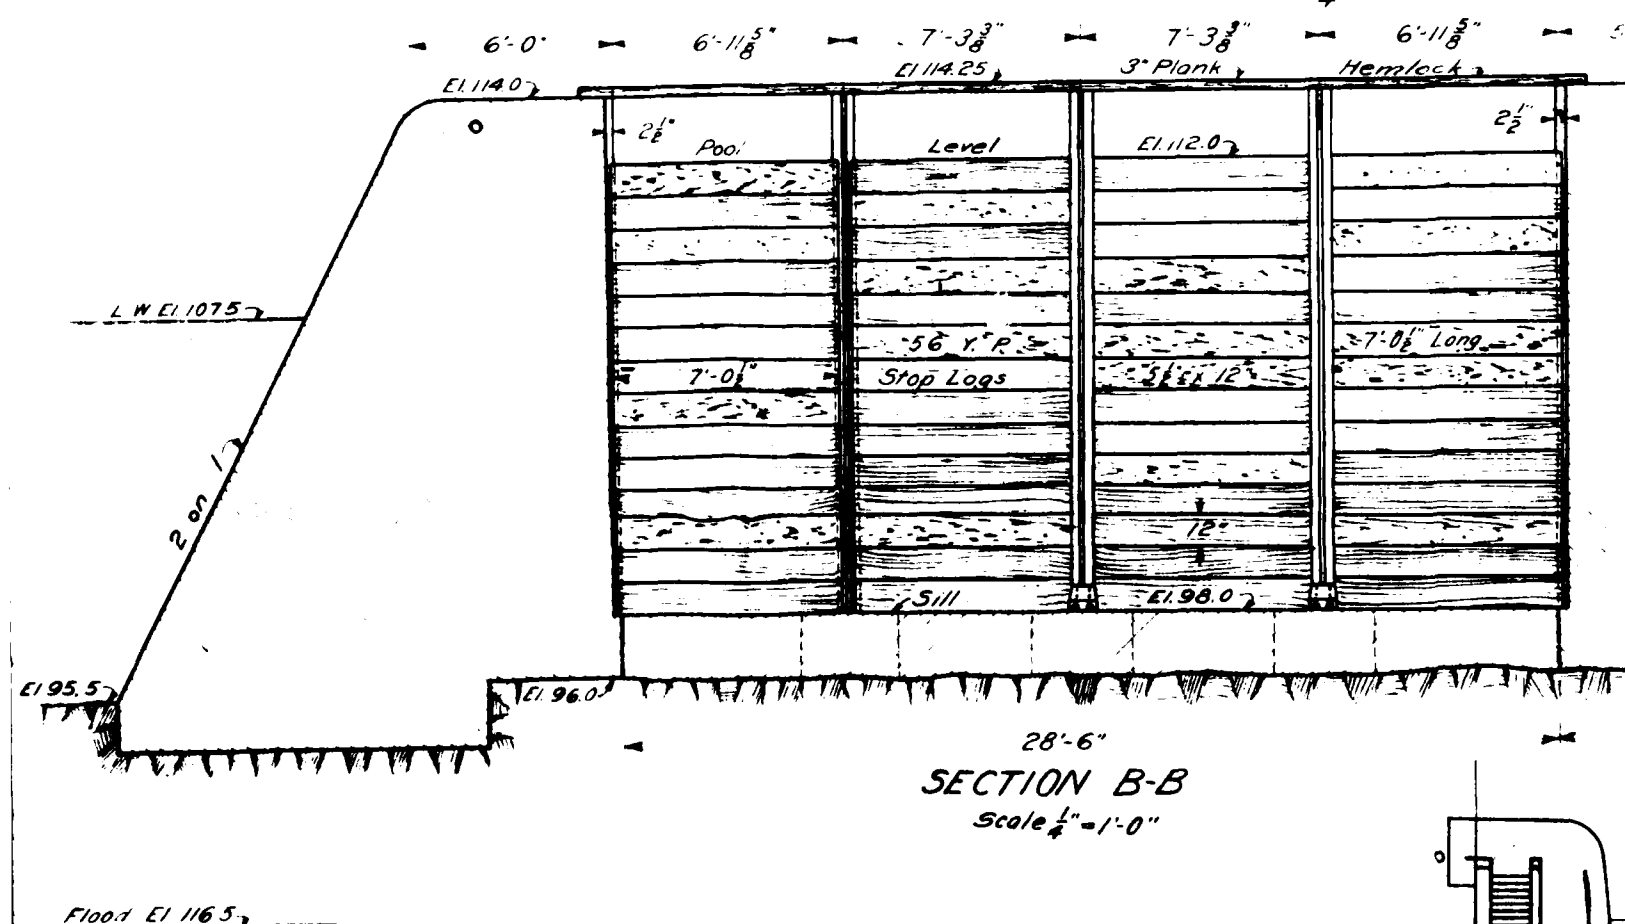 6'-0" 6'-11 5/8" 7'-3 3/8" 7'-3 3/8" 6'-11 5/8"
El. 114.0 El. 114.25 3" Plank Hemlock
2 1/2" 2 1/2"
Pool Level El. 112.0
L W El. 107.5
56 Y. P. 7'-0 1/2" Long
7'-0 1/2" Stop Logs 5 1/2" x 12"
2 on 1
12"
Sill El. 98.0
El 95.5 El. 96.0
28'-6"
SECTION B-B
Scale 1/4" = 1'-0"
Flood El 116.5